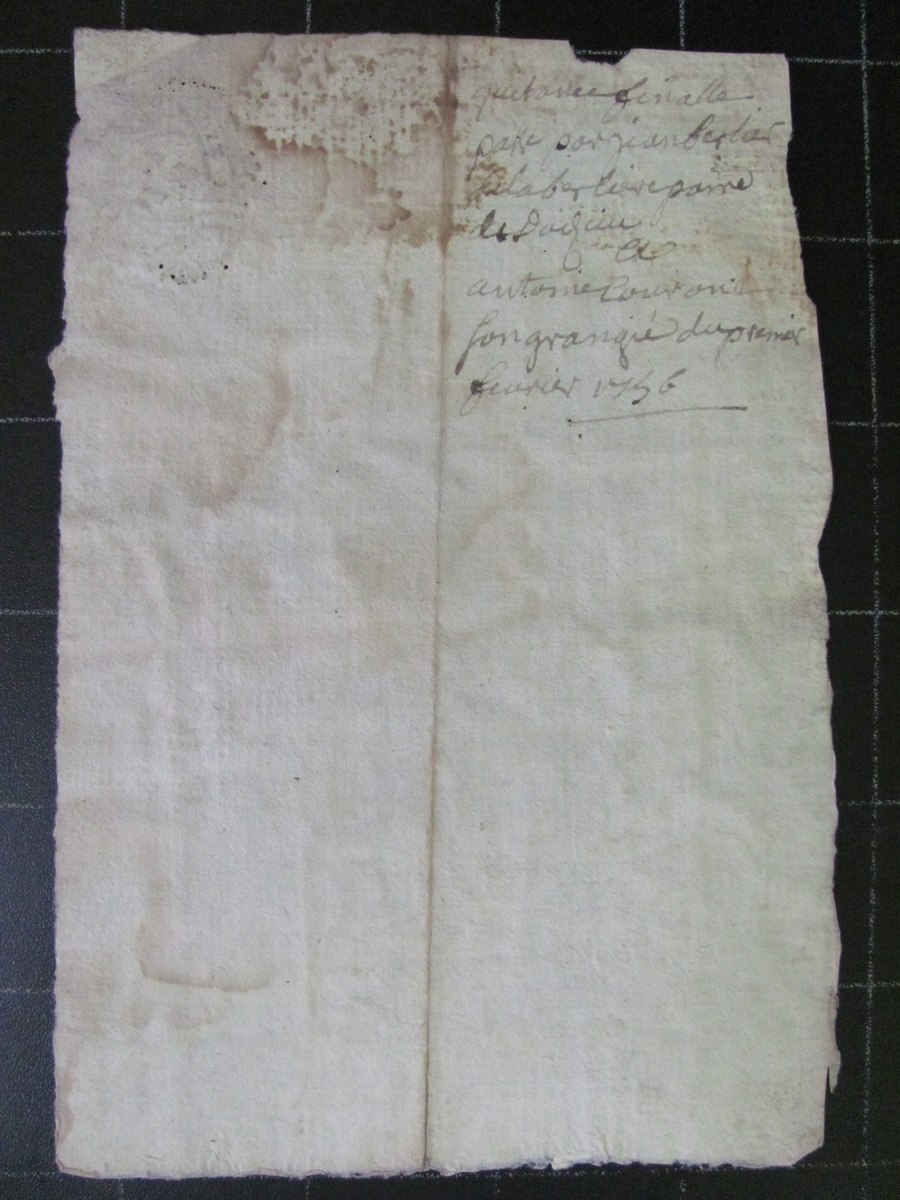 quitance finalle
passé par jean bertier
de la bertiere parre
de Doizieu
et
antoine Couront
son grangié du premier
fevrier 1756